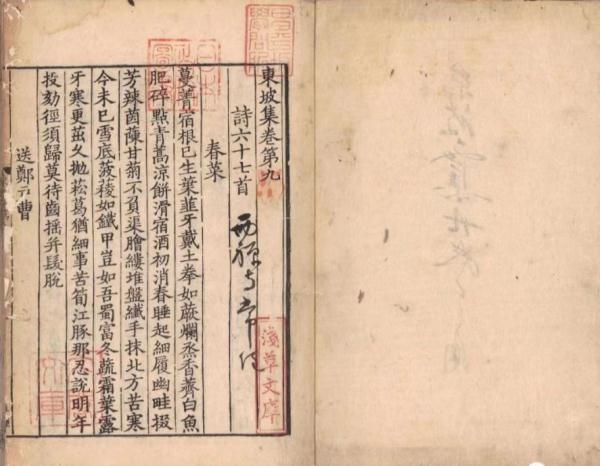 東坡集卷第九
詩六十七首
西禪寺常住
春菜
蔓菁宿根已生葉韮牙戴土拳如蕨爛烝香薺白魚
肥碎點青蒿涼餅滑宿酒初消春睡起細履幽畦掇
芳辣茵蔯甘菊不負渠膾縷堆盤纖手抹北方苦寒
今未已雪底菠稜如鐵甲豈如吾蜀富冬蔬霜葉露
牙寒更茁久拋菘葛猶細事苦筍江豚那忍說明年
投劾徑須歸莫待齒搖并髮脫
送鄭户曹
淺草文庫